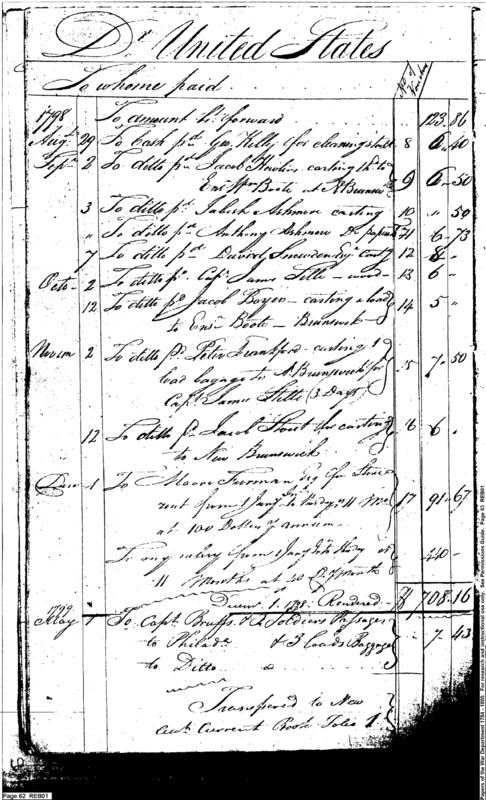 Dr United States
To whome paid No of Voucher
1798 To amount bt forward 123 86
Augt 29 To Cash pd Geo Kelly for cleaning 8 40
Sepr 2 To ditto pd Jacob carting to
Ens Wm Boote at N Brunswk 9 50
3 To ditto pd Ashmore carting 10 " 50
" To ditto pd Anthony Ashmore 11 6 73
7 To ditto pd David Snowden 12 8 "
Octo 2 To ditto pd Capt James Stille wood 13 6 "
12 To ditto pd Jacob carting a load
to Ensn Boote Brunswick 14 5 "
Novem 2 To ditto pd Peter Frankford carting 1
load bagage to N Brunswick for 15 7 50
Capt James Stille (3 Days)
12 To ditto pd Jacob Stout for carting 16 6 "
to New Brunswick
Decm 1 To Moore Furman Esq for Store
rent from 1 Jany to 11 Mo 17 91 67
at 100 Dollars pr annum
To my salary from 1 Jany
11 Months at 40 D pr month 440
Decemr 1 1798 Rendered 708 16
1799
May 1 To Capt Bruffs & 2 Soldiers Passages
to Philada & 3 loads Baggage 7 43
to Ditto
Transfered to New
Current Book Folio 1
Page 62 REB01
Papers of the War Department 1784 - 1800. For research and instructional use only. See Permissions Guide. Page 63 REB01